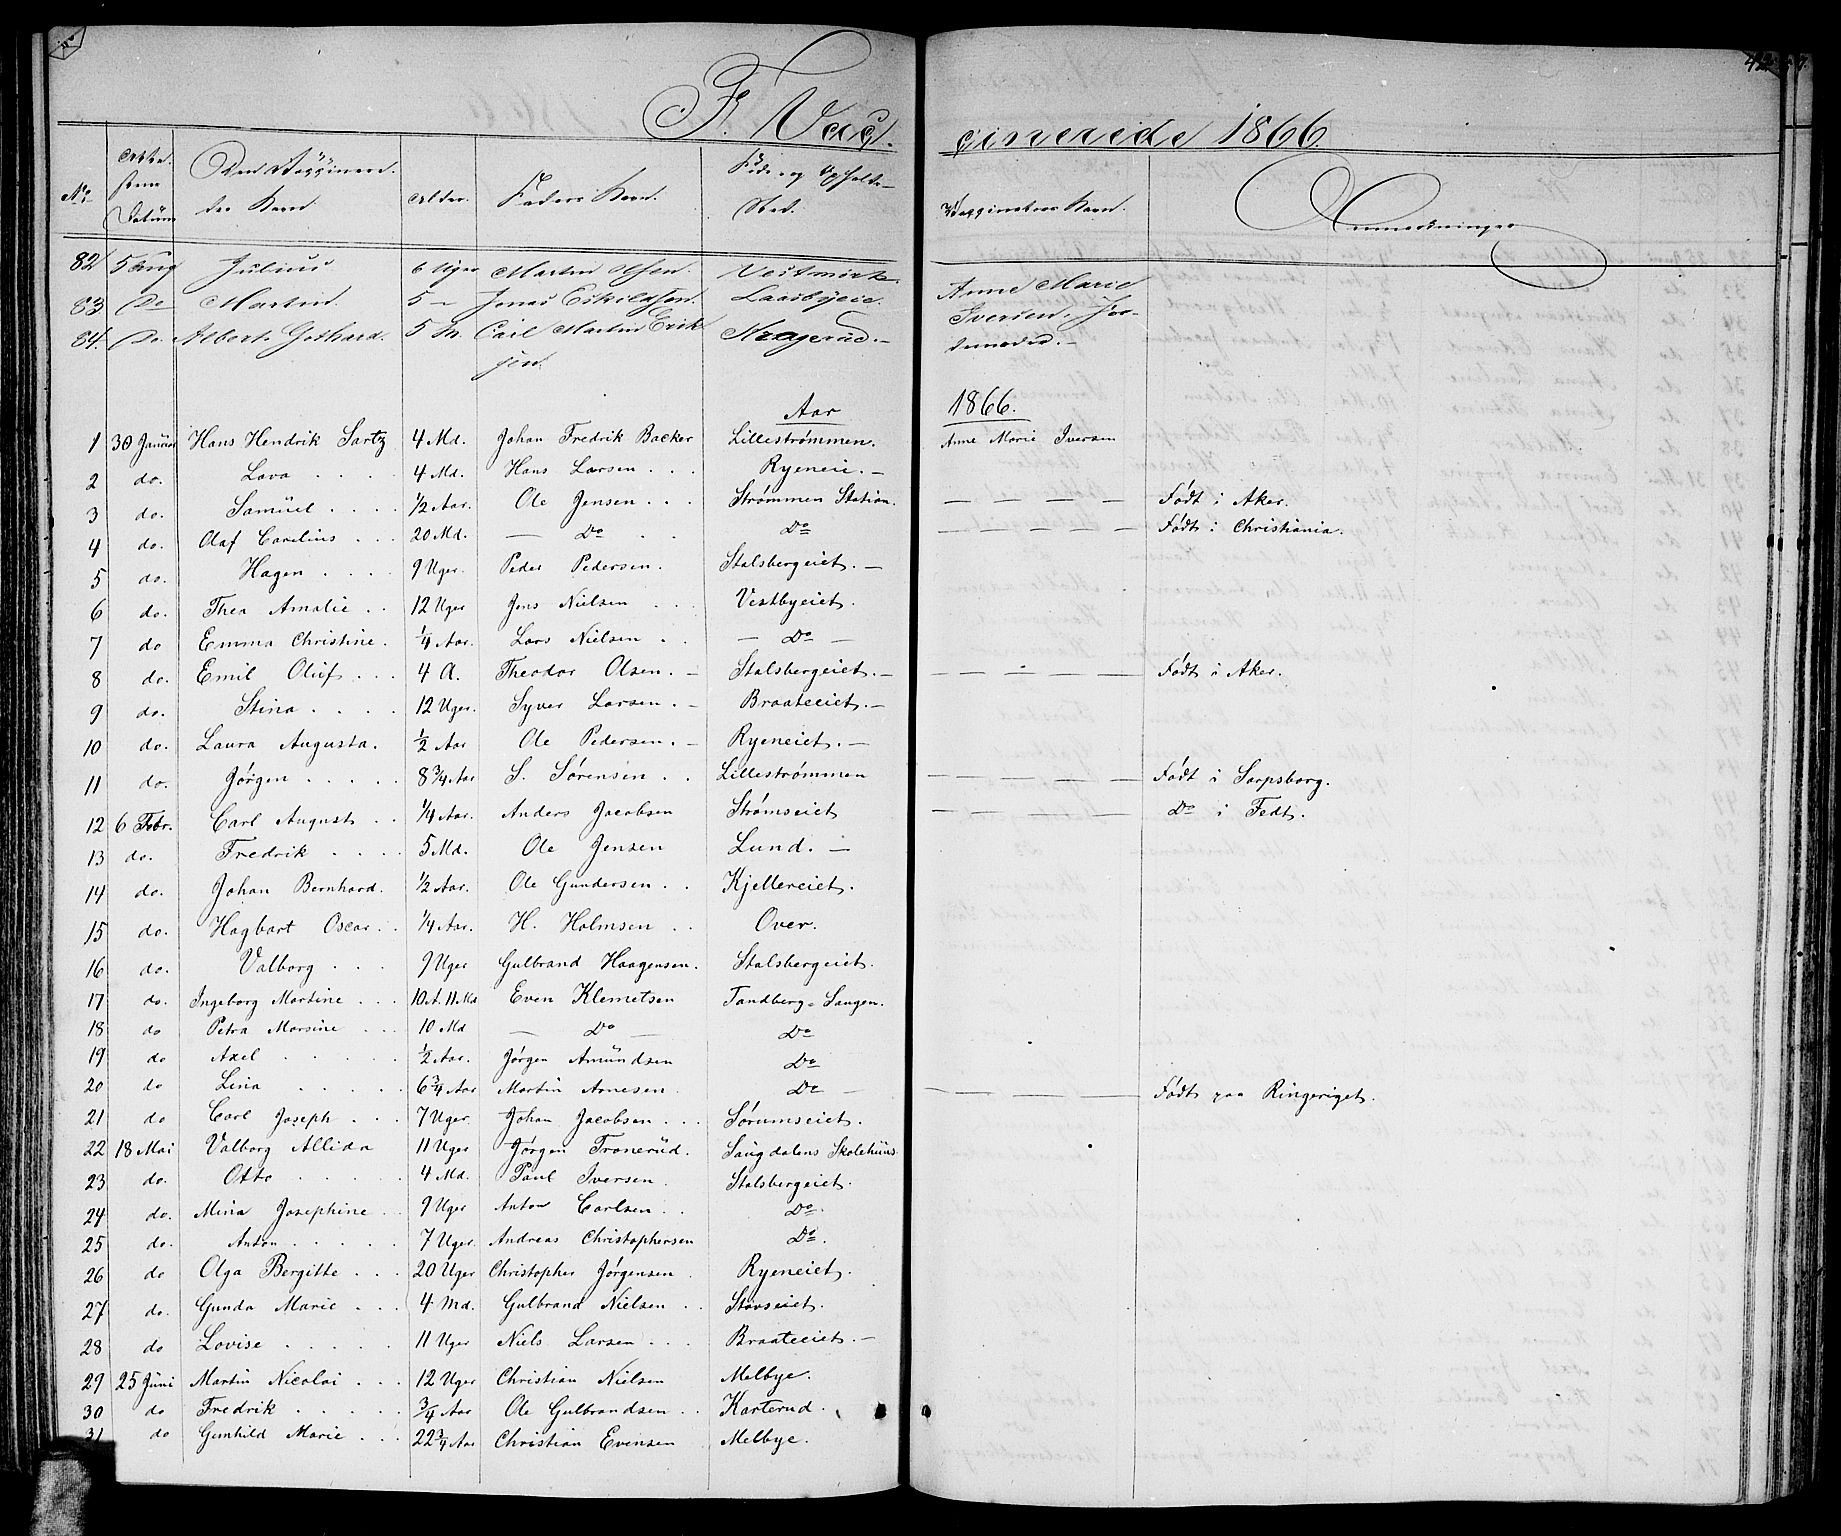 F. Vacç. çinerede 1866.
42
No. Datum Den Vaççinere- Alder. Faders Navn. Føde- og Opholds- Vaççinators Navn. Anmerkninger
des Navn. Sted.
82 5 Aug Julius 6 Uger Martin Olsen. Vestmork Anne Marie
83 Do Martin. 5 — Jonas Eskildsen. Iversen, Jor-
84. Do. Albert Gothard. 5 M. Carl Martin Erik- Kragerud. — demoder. —
sen.
Aar 1866.
1 30 Januar Hans Hendrik Sartz 4 Md. Johan Fredrik Backer Lillestrømmen. Anne Marie Iversen
2 do. Lava . . . . 4 Md. Hans Larsen . . . Ryeneie. —
3 do. Samüel . . . . 1/2 Aar. Ole Jensen . . . Strømmen Station. — — — — Født i Aker.
4 do. Olaf Carelius . . . 20 Md. — Do . . Do — — — — Født i Christiania.
5 do. Hagen . . . . 9 Uger. Peder Pedersen. Stalsbergeiet. —
6 do. Thea Amalie . . 12 Uger Jens Nielsen . . . Vestbyeiet.
7 do Emma Christine. 1/4 Aar. Lars Nielsen . . — Do —
8 do. Emil Oluf . . . 4 A. Theodor Olsen. — Stalsbergeiet. — — — — — Født i Aker.
9 do. Stina . . . . 12 Uger. Syver Larsen. — Braateeiet. —
10 do. Laura Augusta. 1/2 Aar Ole Pedersen. — Ryeneiet. —
11 do. Jørgen . . . . . 8 3/4 Aar S. Sørensen . . Lillestrømmen — — — — Født i Sarpsborg.
12 6 Febr. Carl August . . 1/4 Aar. Anders Jacobsen Strømseiet — — — — Do i Fedt.
13 do. Fredrik . . . . 5 Md. Ole Jensen Lund. —
14 do. Johan Bernhard. 1/2 Aar. Ole Gundersen . . Kjellereiet.
15 do. Hagbart Oscar . . 1/4 Aar. H. Holmsen . . Over.
16 do. Valborg . . . 9 Uger Gulbrand Haagensen. Stalsbergeiet.
17 do. Ingeborg Martine . . . 10 A. 11 Md Even Klemetsen Tandberg-Saugen.
18 do Petra Marsine . . . 10 Md — Do — Do
19 do Axel . . . . . 1/2 Aar. Jørgen Amündsen Do
20 do Lina . . . . . 6 3/4 Aar Martin Arnesen. Do — — — — — Født paa Ringeriget.
21 do Carl Joseph . . . 7 Uger. Johan Jacobsen . . . Sørumseiet.
22 18 Mai Valborg Allida 11 Uger Jørgen Tronerüd. Saugdalens Skolehüus
23 do. Otto . . . . . 4 Md. Paul Iversen . Stalsbergeiet.
24 do. Mina Josephine . 9 Uger Anton Carlsen . . Do.
25 do. Anton . . . . . 7 Uger. Andreas Christophersen Do.
26 do Olga Bergitte . . . 20 Uger Christopher Jørgensen . Ryeneiet.
27 do. Gunda Marie . . . 4 Md. Gulbrand Nielsen . . Stavseiet.
28 do Lovise . . . . . 11 Uger Niels Larsen . . . Braateeiet. —
29 25 Jüni Martin Nicolai . . . 12 Uger Christian Nielsen Melbye.
30 do Fredrik . . . . . 3/4 Aar Ole Gulbrandsen . . Karterud.
31 do Gunhild Marie . . . 22 3/4 Aar Christian Evensen Melbye.